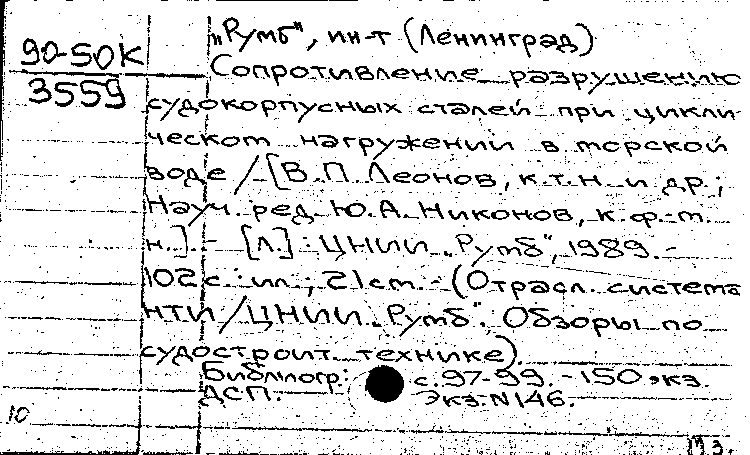 90-50К
3559
„Румб", ин-т (Ленинград)
Сопротивление разрушению
судокорпусных сталей при цикли-
ческом нагружении в морской
воде / [В.П. Леонов, к.т.н. и др.;
Науч. ред. Ю.А. Никонов, к. ф.-м.
н.]. - [Л.] : ЦНИИ „Румб", 1989. -
102 с. : ил. ; 21 см. - (Отрасл. система
НТИ / ЦНИИ „Румб". Обзоры по
судостроит. технике).
Библиогр.: с. 97-99. - 150 экз.
ДСП. Экз. N 146.
10